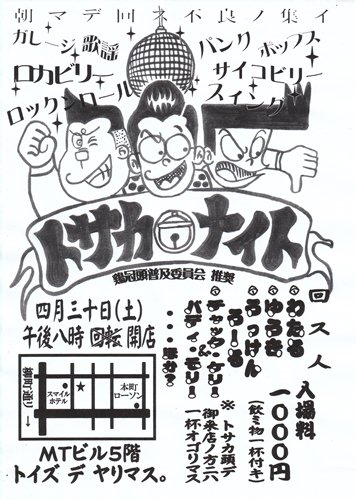 朝マデ回ネ不良ノ集イ
ガレージ 歌謡 パンク ポップス
ロカビリー サイコビリー
ロックンロール スイング
トサカ ナイト
鶏冠頭普及委員会 推奨
四月三十日(土)
午後八時 回転 開店
回ス人
わたる
ゆうき
うっけん
うーる
チャック・ケリー
バディ・モリー
・・・ほか!
入場料
一〇〇〇円
(飲ミ物一杯付キ)
※トサカ頭デ
御来店ノ方ニハ
一杯オゴリマス
柳町通リ→
スマイル
ホテル
★
本町
ローソン
MTビル5階
トイズ デ ヤリマス。